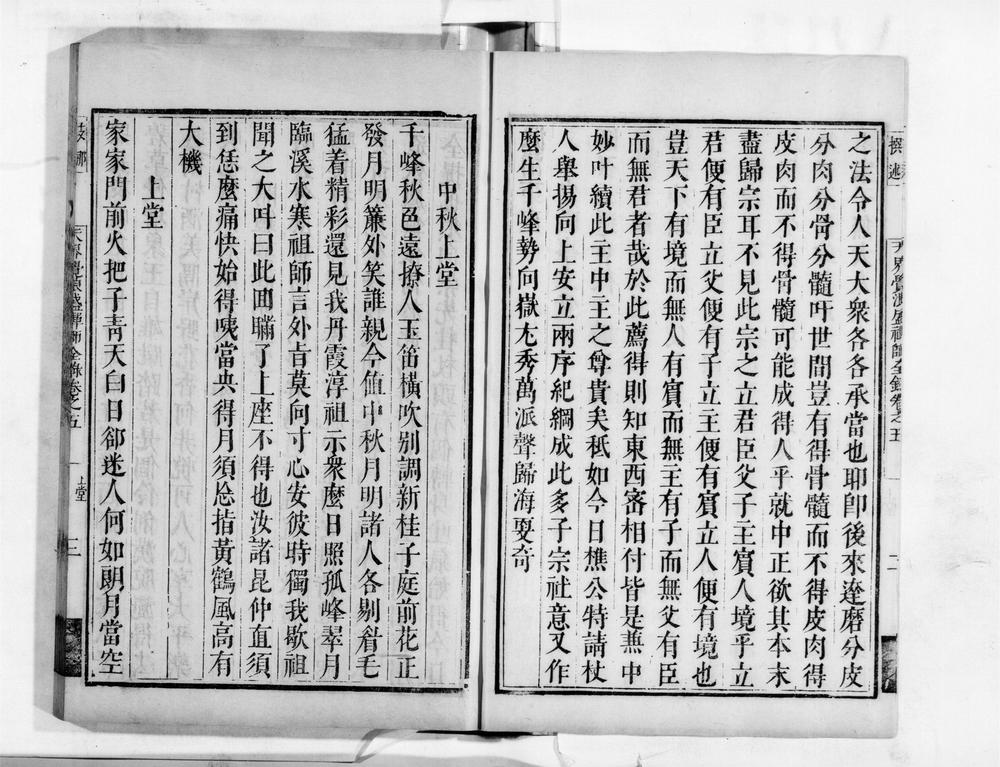 之法令人天大衆各各承當也耶卽後來達磨分皮
分肉分骨分髓叶世間豈有得骨髓而不得皮肉得
皮肉而不得骨髓可能成得人乎就中正欲其本末
盡歸宗耳不見此宗之立君臣父子主賓人境乎立
君便有臣立父便有子立主便有賓立人便有境也
豈天下有境而無人有賓而無主有子而無父有臣
而無君者哉於此薦得則知東西密相付皆是兼中
妙叶續此主中主之尊貴矣秖如今日樵公特請杖
人舉揚向上安立兩序紀綱成此多子宗社意又作
麼生千峰勢向嶽尢秀萬派聲歸海更奇
中秋上堂
千峰秋色遠撩人玉笛橫吹別調新桂子庭前花正
發月明簾外笑誰親今値中秋月明諸人各剔眷毛
猛着精彩還見我丹霞淳祖示衆麼日照孤峰翠月
臨溪水寒祖師言外旨莫向寸心安彼時獨我歇祖
聞之大呌曰此回瞞了上座不得也汝諸昆仲直須
到恁麼痛快始得咦當央得月須忘指黃鶴風高有
大機
上堂
家家門前火把子靑天白日郤迷人何如朗月當空
上堂
三